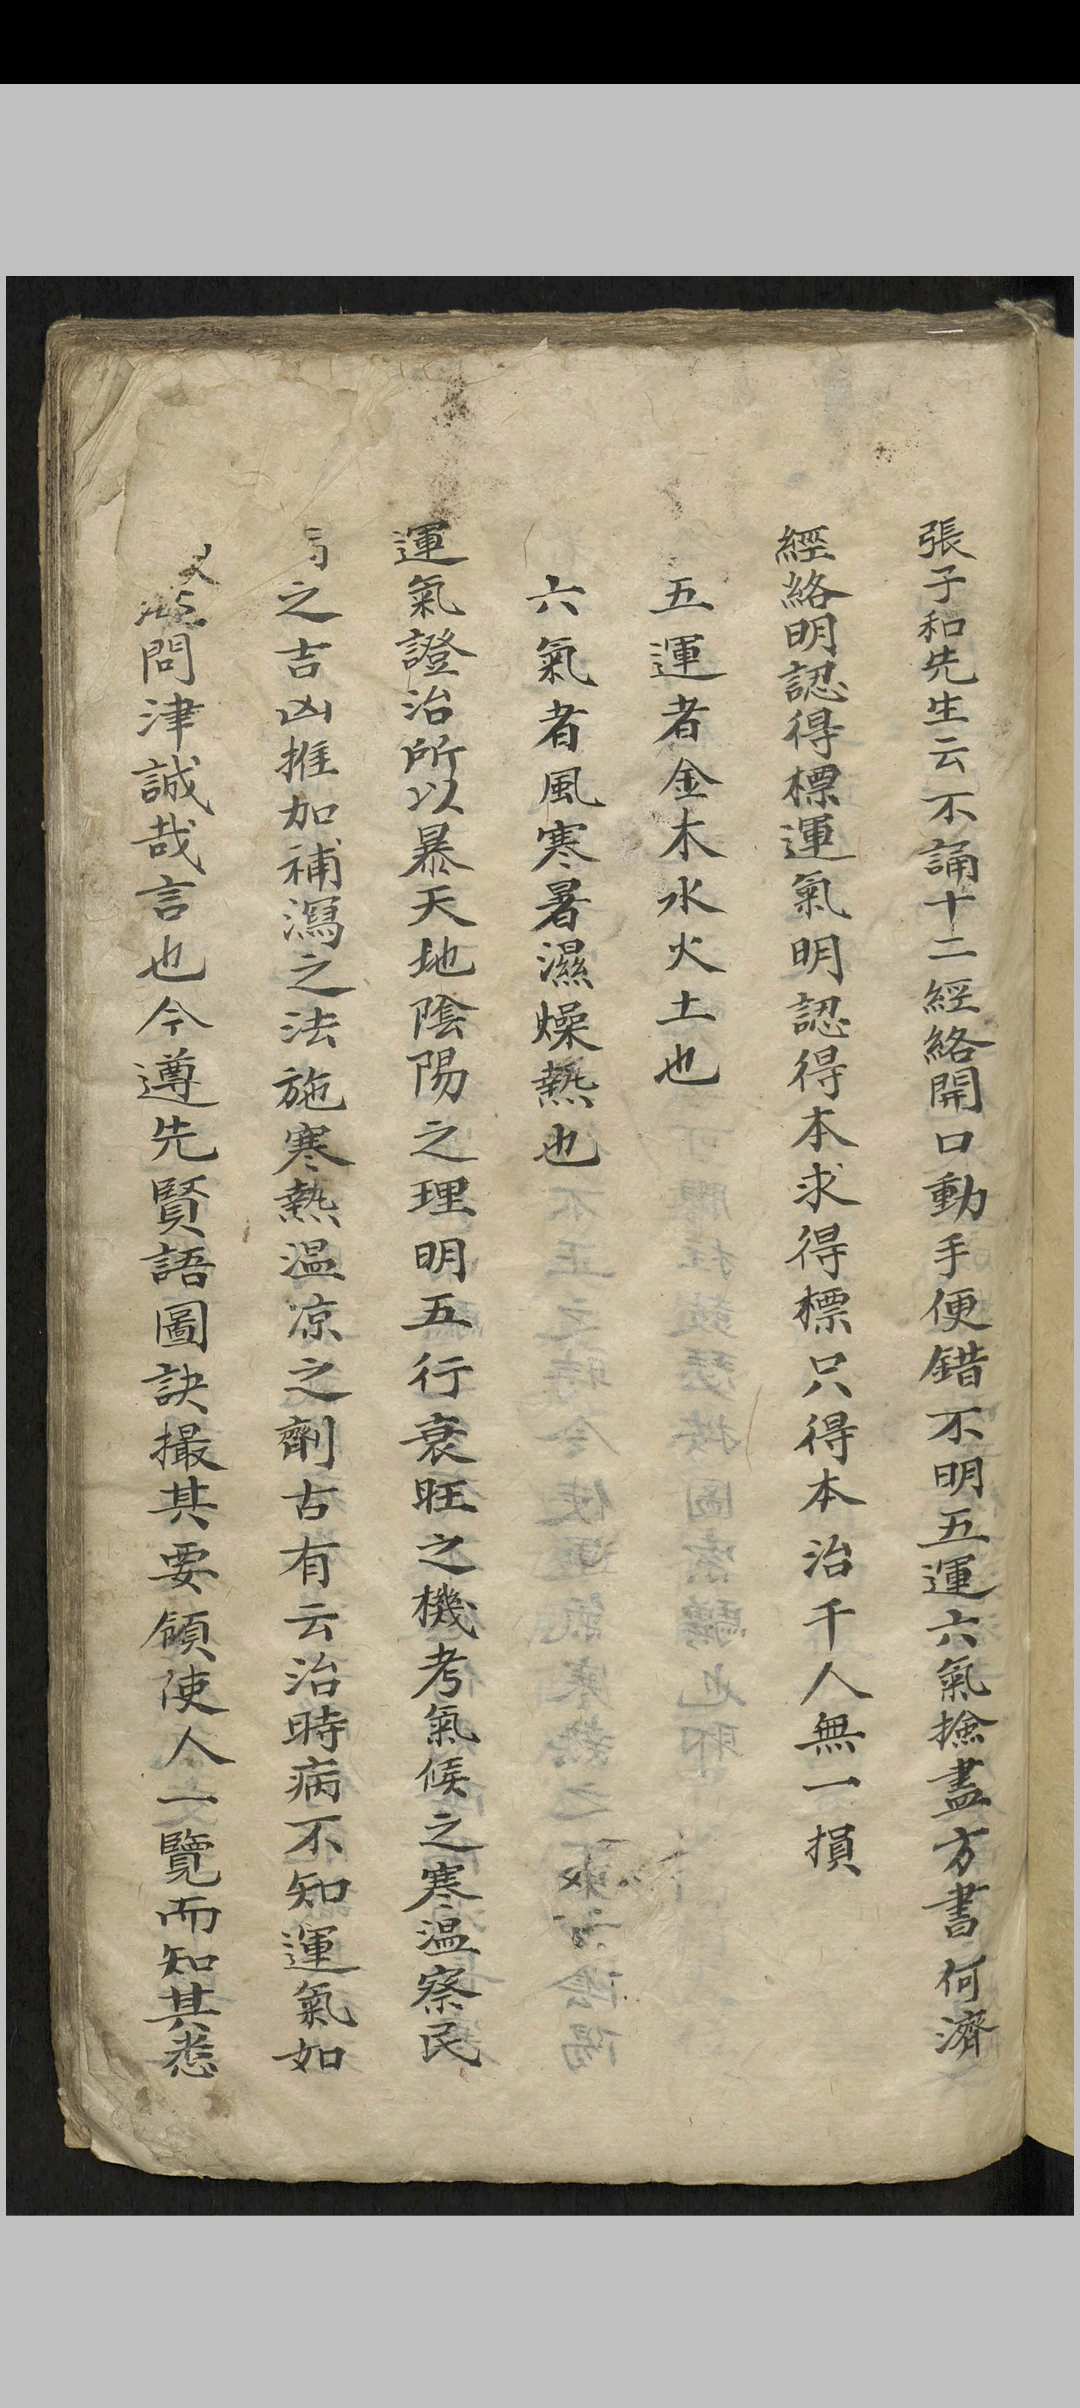 張子和先生云不誦十二經絡開口動手便錯不明五運六氣撿盡方書何濟
經絡明認得標運氣明認得本求得標只得本治千人無一損
五運者金木水火土也
六氣者風寒暑濕燥熱也
運氣證治所以暴天地陰陽之理明五行衰旺之機考氣候之寒温察民
之吉凶推加補瀉之法施寒熱温凉之劑古有云治時病不知運氣如
問津誠哉言也今遵先賢語圖訣撮其要領使人一覽而知其悉